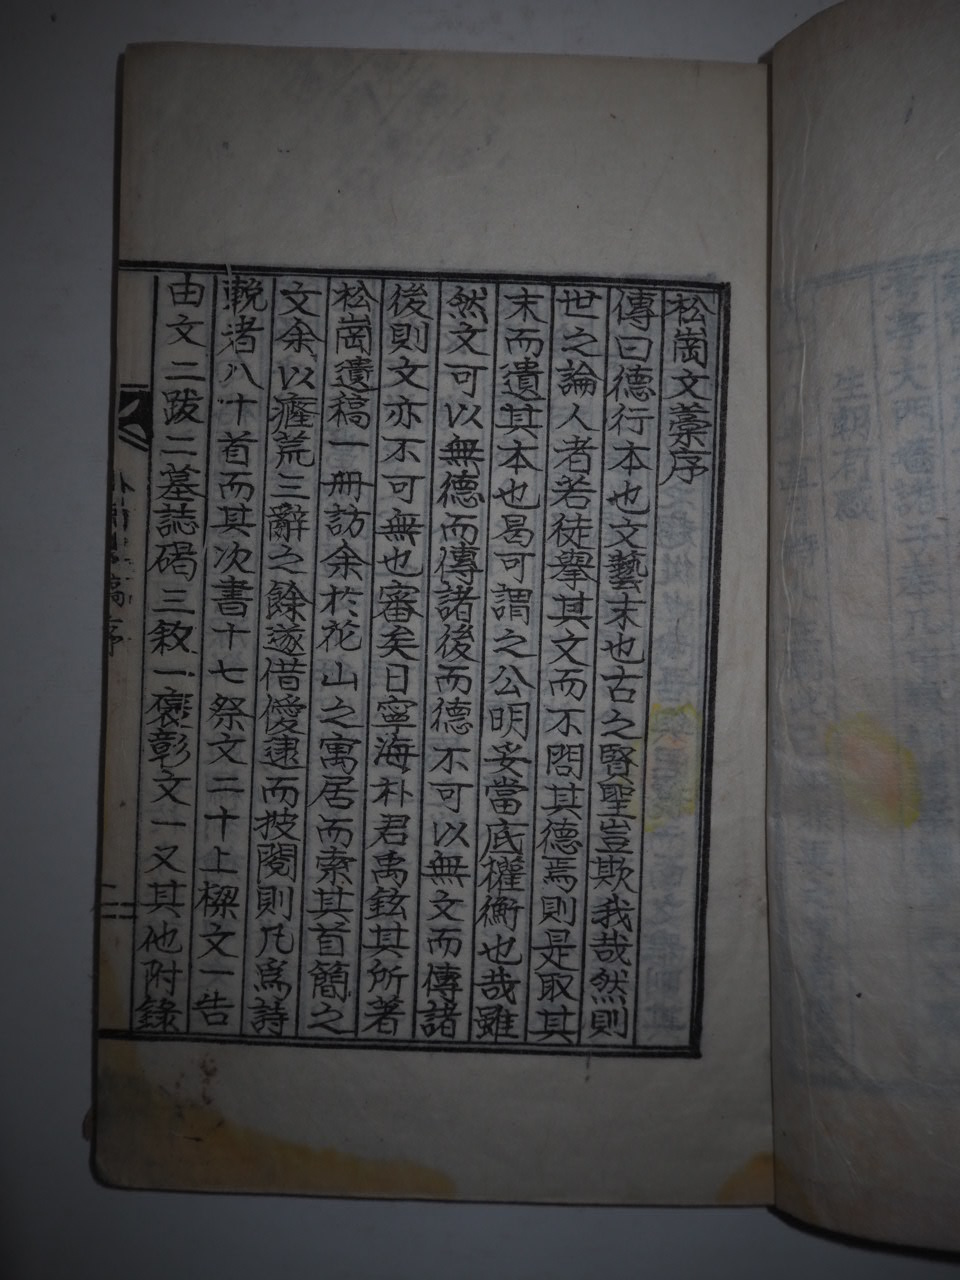 松崗文藁序
傳曰德行本也文藝末也古之賢聖豈欺我哉然則
世之論人者若徒擧其文而不問其德焉則是取其
末而遺其本也曷可謂之公明妥當底權衡也哉雖
然文可以無德而傳諸後而德不可以無文而傳諸
後則文亦不可無也審矣日寧海朴君禹鉉其所著
松崗遺稿一册訪余於花山之寓居而索其首簡之
文余以癃荒三辭之餘遂借僾逮而披閱則凡爲詩
輓者八十首而其次書十七祭文二十上樑文一告
由文二跋二墓誌碣三敘一褒彰文一又其他附錄